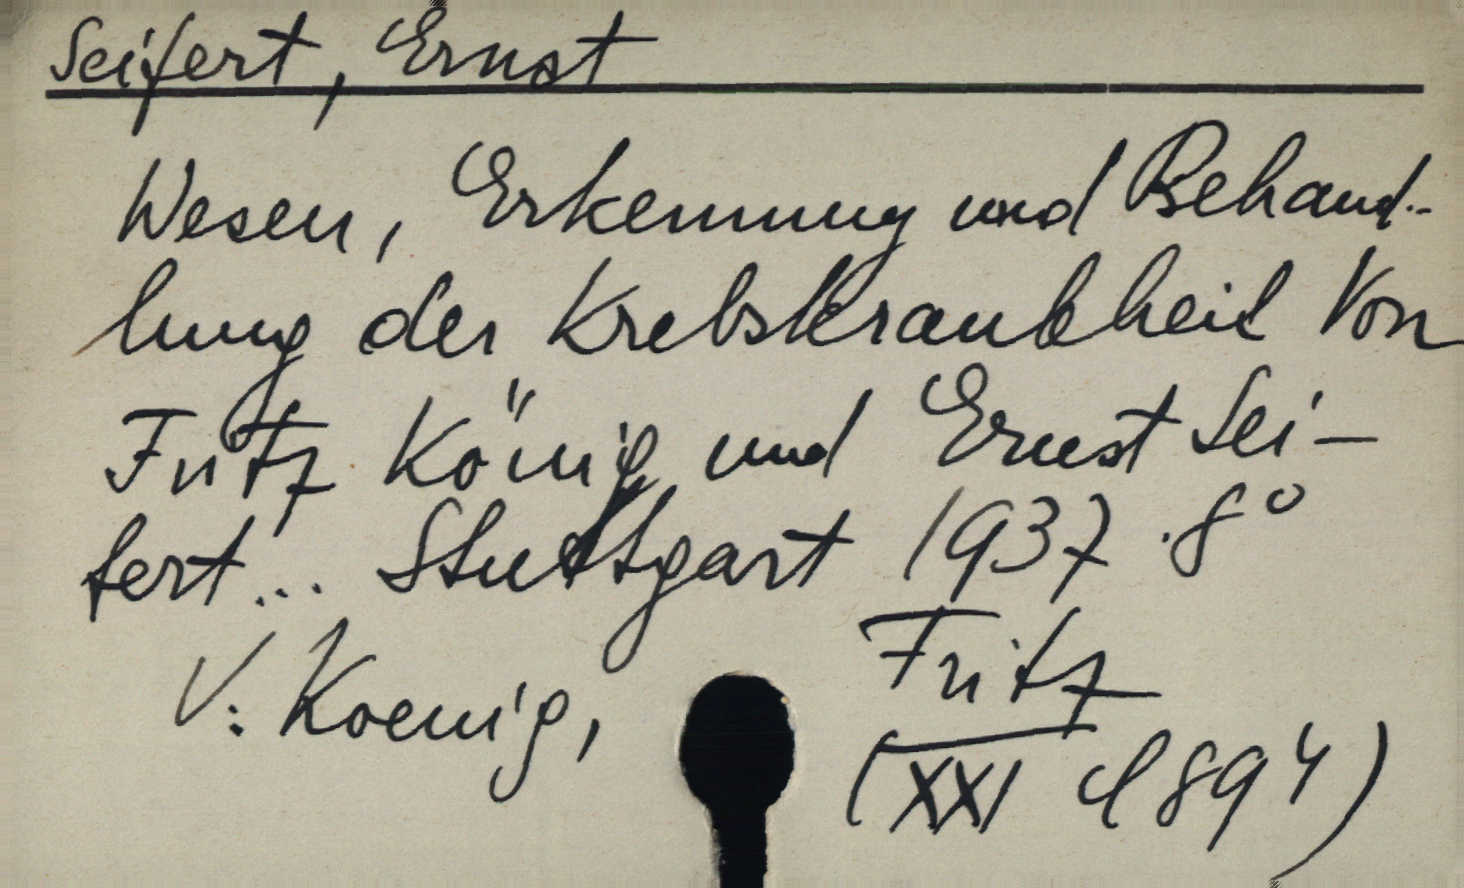 Seifert, Ernst
Wesen, Erkennung und Behand-
lung der Krebskrankheit Von
Fritz König und Ernst Sei-
fert... Stuttgart 1937. 8°
V: Koenig, Fritz
(XXI d 894)